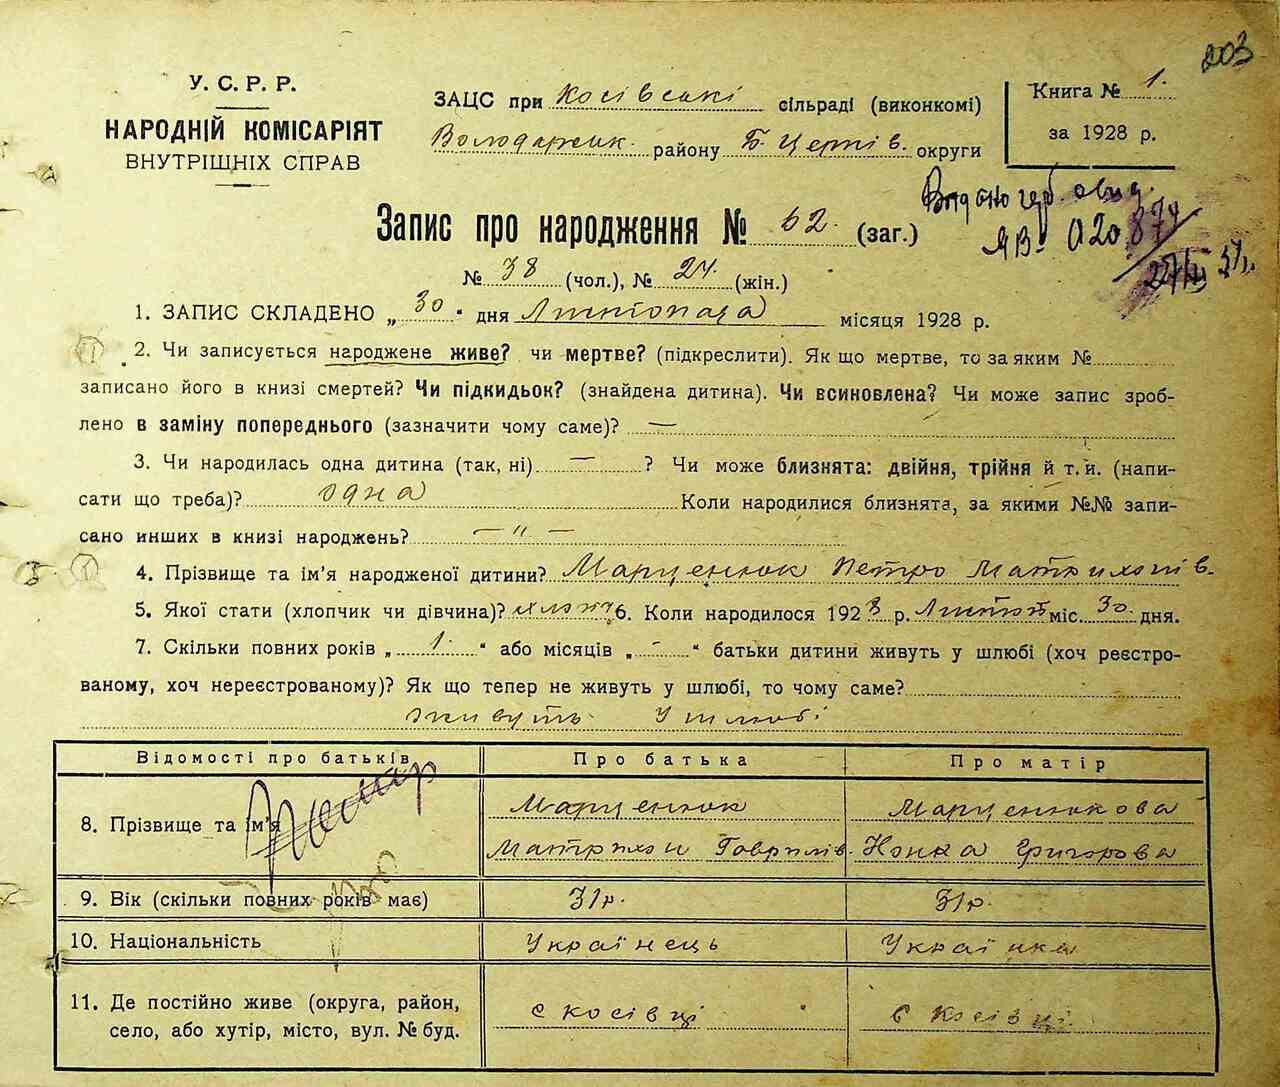 203
У. С. Р. Р.
НАРОДНІЙ КОМІСАРІЯТ
ВНУТРІШНІХ СПРАВ
ЗАЦС при Косівські сільраді (виконкомі)
Володаржик. району Б. Церків. округи
Книга № 1.
за 1928 р.
Видано герб. свид.
ЯВ- 020874
27/III 37р.
Запис про народження № 62. (заг.)
№ 38 (чол.), № 24. (жін.)
1. ЗАПИС СКЛАДЕНО „ 30 " дня Листопада місяця 1928 р.
2. Чи записується народжене живе? чи мертве? (підкреслити). Як що мертве, то за яким №
записано його в книзі смертей? Чи підкидьок? (знайдена дитина). Чи всиновлена? Чи може запис зроб-
лено в заміну попереднього (зазначити чому саме)? —
3. Чи народилась одна дитина (так, ні) — ? Чи може близнята: двійня, трійня й т. и. (напи-
сати що треба)? одна Коли народилися близнята, за якими №№ запи-
сано инших в книзі народжень? — " —
4. Прізвище та ім'я народженої дитини? Марценюк Петро Матвихопів.
5. Якої стати (хлопчик чи дівчина)? хлопч 6. Коли народилося 1928 р. Листоп міс. 30. дня.
7. Скільки повних років „ 1. " або місяців „ - " батьки дитини живуть у шлюбі (хоч реєстро-
ваному, хоч нереєстрованому)? Як що тепер не живуть у шлюбі, то чому саме?
живуть у шлюбі
Відомості про батьків Про батька Про матір
8. Прізвище та ім'я Марценюк Марценюкова
Гаврилів. Григорова
9. Вік (скільки повних років має) 31р. 31р.
10. Національність Українець Українка
11. Де постійно живе (округа, район,
село, або хутір, місто, вул. № буд. с Косівці с Косівці.